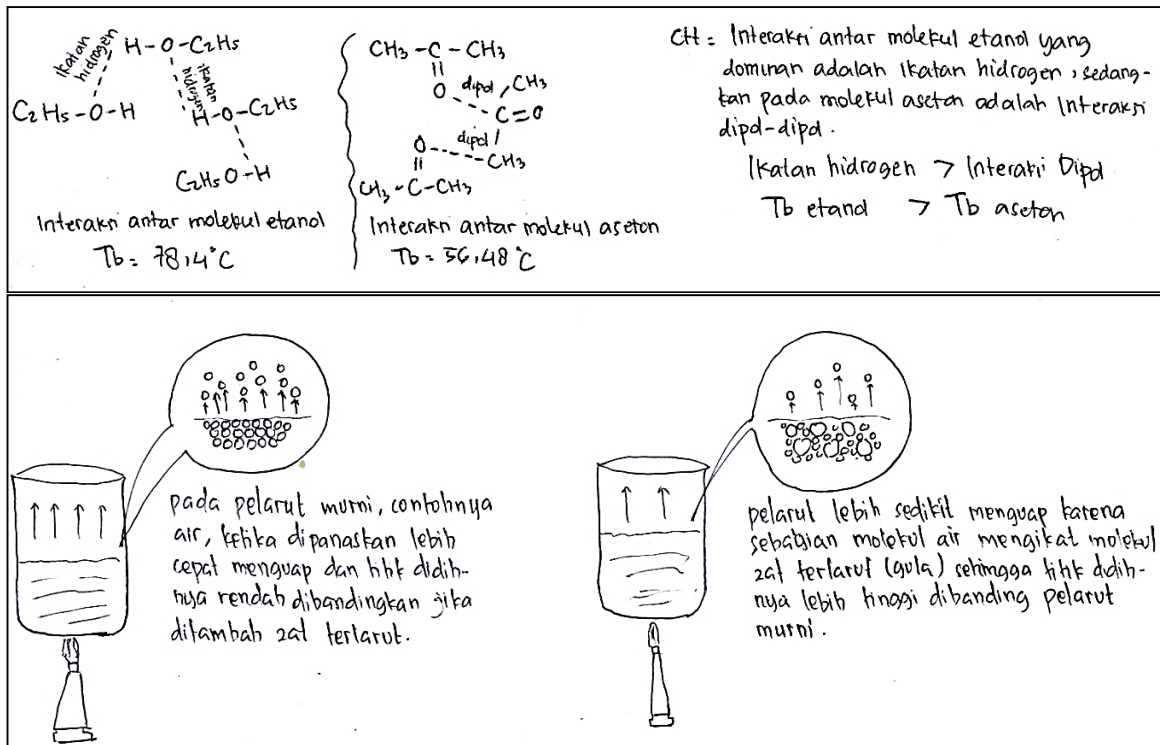 ikatan
hidrogen
H-O-C2H5
ikatan
hidrogen
C2H5-O-H
H-O-C2H5
C2H5O-H
Interaksi antar molekul etanol
Tb = 78,4°C
CH3-C-CH3
||
O
dipol
CH3
C=O
dipol
O
CH3
||
CH3-C-CH3
Interaksi antar molekul aseton
Tb = 56,48°C
Interaksi antar molekul etanol yang
dominan adalah ikatan hidrogen, sedang-
kan pada molekul aseton adalah Interaksi
dipol-dipol.
Ikatan hidrogen > Interaksi Dipol
Tb etanol > Tb aseton
pada pelarut murni, contohnya
air, ketika dipanaskan lebih
cepat menguap dan titik didih-
nya rendah dibandingkan jika
ditambah zat terlarut.
pelarut lebih sedikit menguap karena
sebagian molekul air mengikat molekul
zat terlarut (gula) sehingga titik didih-
nya lebih tinggi dibanding pelarut
murni.